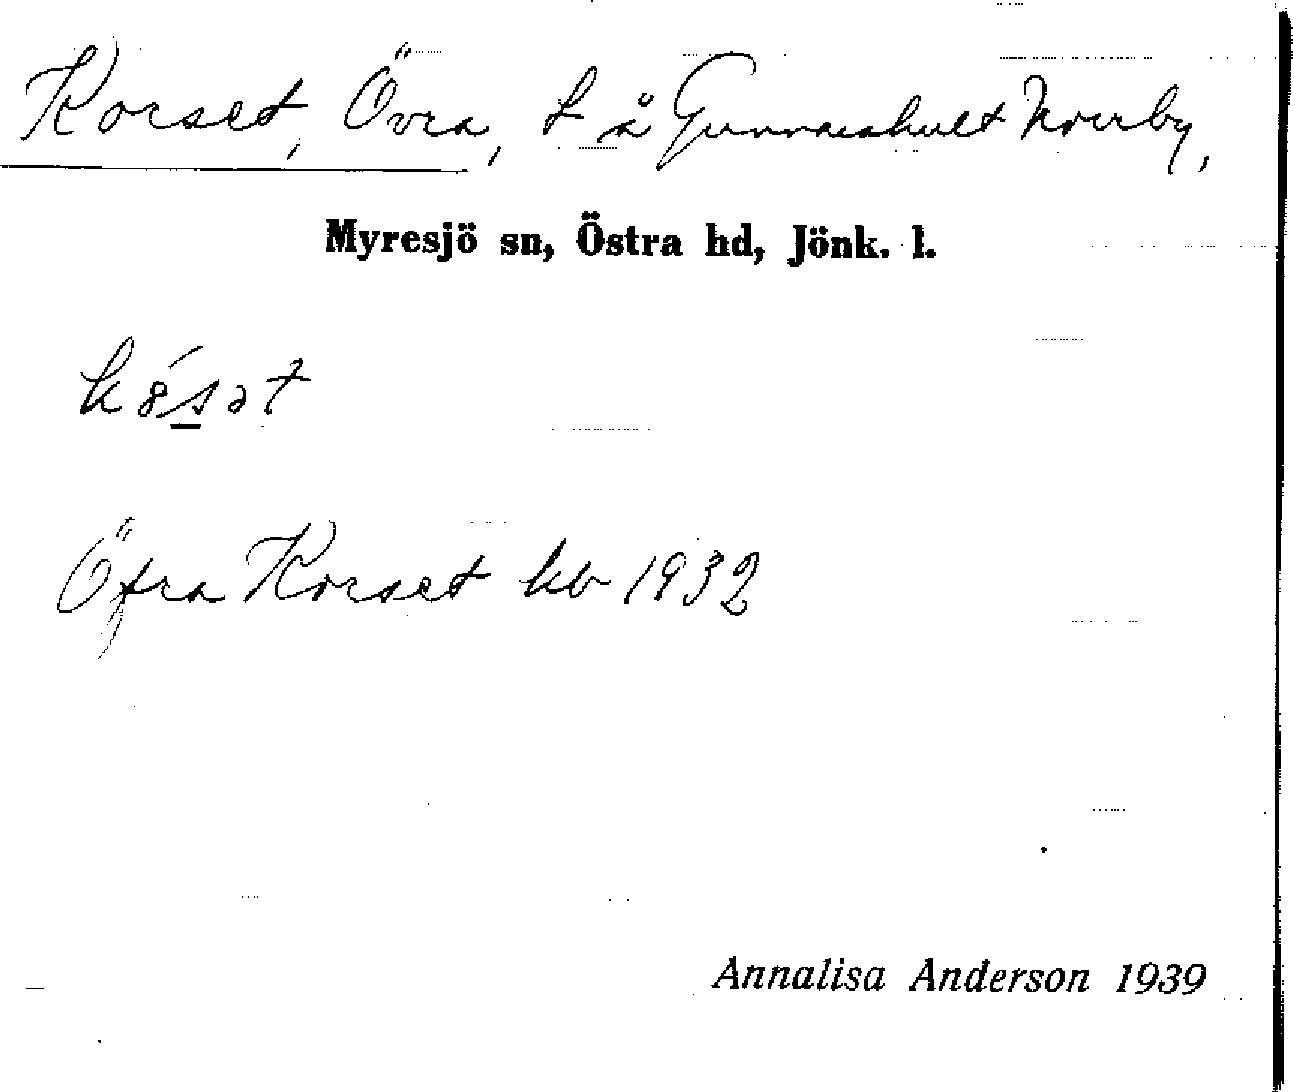 Korset, Övra, t å Gunnarshult Norrby,
Myresjö sn, Östra hd, Jönk. l.
Öfra Korset kb 1932
Annalisa Anderson 1939